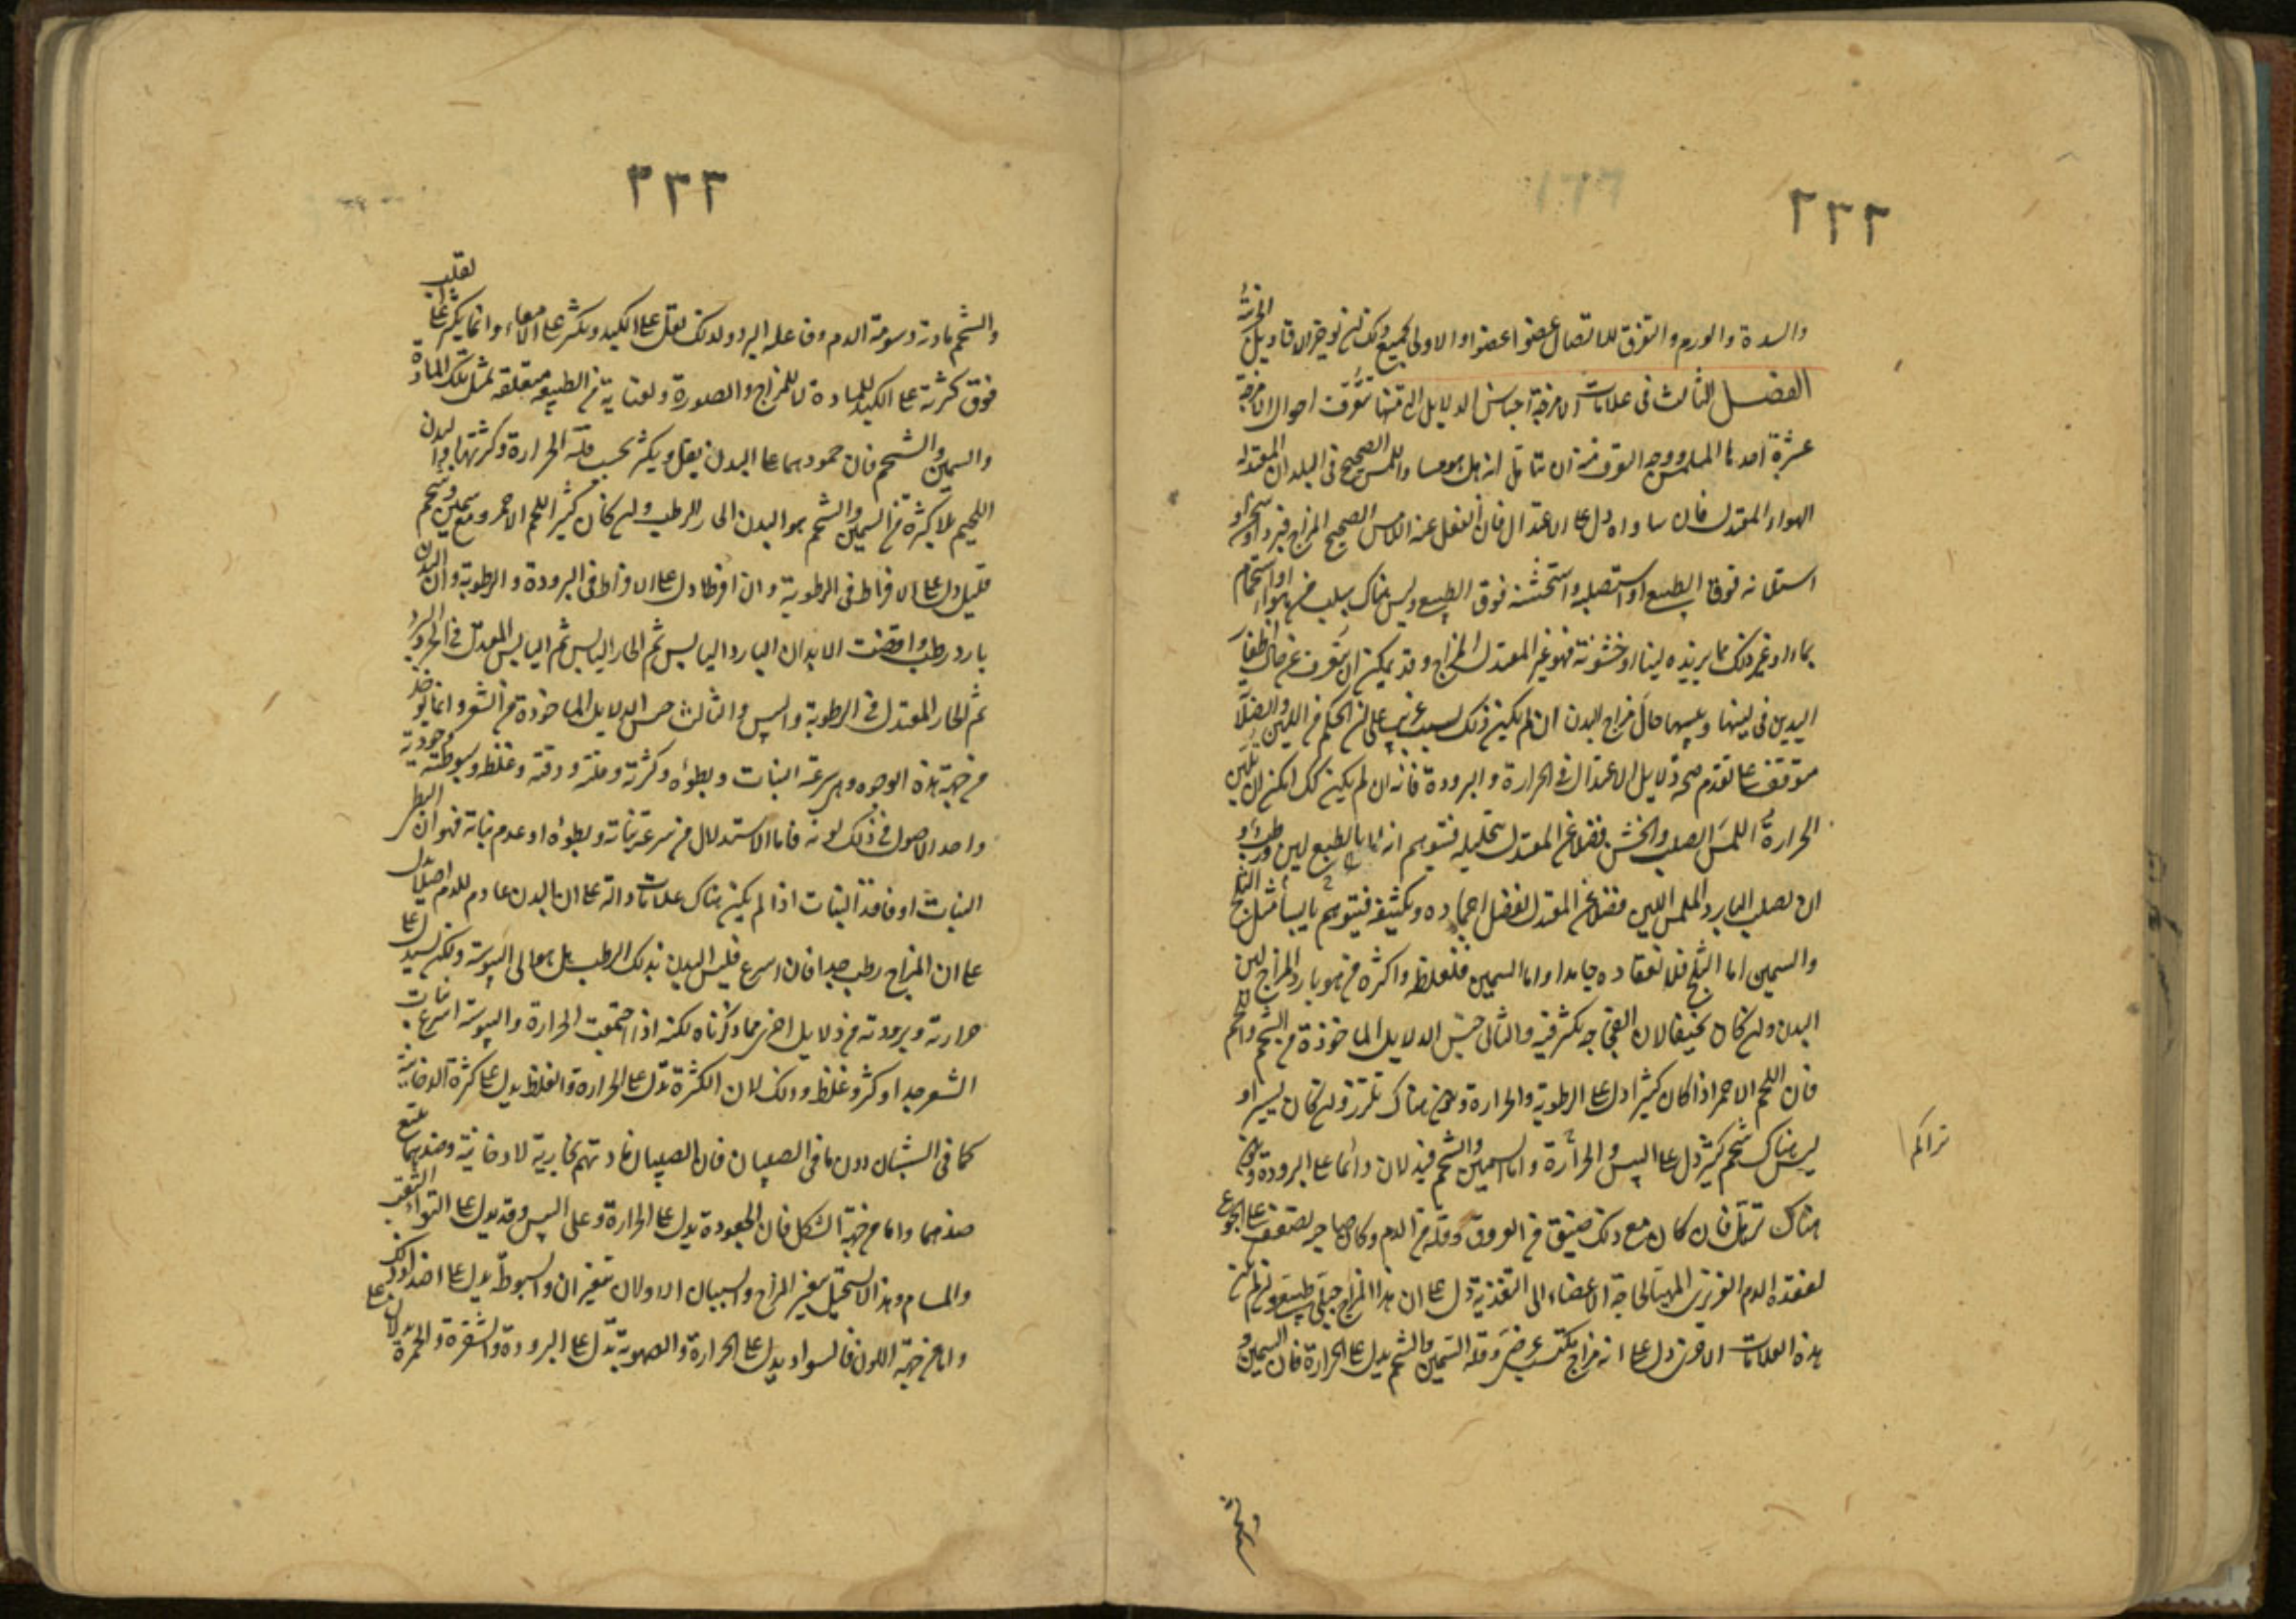 ٢٢٢
والسدة والورم والتفرق للاتصال عضوا عضوا والاولى بجميع ذلك ان نوخر الاقاويل الجزئية
الفصل الثالث فى علامات الامزجة اجناس الدلايل التى منها تتعرف احوال الامزجة
عشرة احدها الملمس ووجه التعرف منه ان تتامل انه هل هو مساو للمس الصحيح فى البلدان المعتدلة
الهواء المعتدل فان ساواه دل على الاعتدال فان انفعل عنه اللامس الصحيح المزاج فبرد او سخن او
استلانه فوق الطبيع او استصلبه واستخشنه فوق الطبيع وليس هناك سبب من هواء او استحمام
بماء او غير ذلك مما يزيده لينا او خشونة فهو غير المعتدل المزاج وقد يمكن ان يتعرف من حال اظفار
اليدين فى لينها ويبسها حال مزاج البدن ان لم يكن ذلك لسبب غريب على ان الحكم من اللين والصلابة
متوقف على تقدم صحة دلايل الاعتدال فى الحرارة والبرودة فانه ان لم يكن كك امكن ان يلين
الحرارة اللمس الصلب والخشن فضلا عن المعتدل بتحليله فيتوهم انه بالطبع لين ورطب او
ان يصلب البارد الملمس اللين فضلا عن المعتدل لفضل اجماده وتكثيفه فيتوهم يابسا مثل الثلج
والسمين اما الثلج فلانعقاده جامدا واما السمين فلغلظه واكثره من هو بارد المزاج لين
البدن وان كان نحيفا لان الفجاجه تكثر فيه والثانى جنس الدلايل الماخوذة من الشحم واللحم
فان اللحم الاحمر اذا كان كثيرا دل على الرطوبة والحرارة ويكون هناك تلزز وان كان يسيرا و
ليس هناك شحم كثير دل على اليبس والحرارة واما السمين والشحم فيدلان دائما على البرودة ويكون
هناك ترهل فان كان مع ذلك ضيق من العروق وقلة من الدم وكان صاحبه يضعف على الجوع
لفقده الدم الغريزى المهيا لحاجة الاعضاء الى التغذية دل على ان هذا المزاج جبلى طبيعى وان لم تكن
هذه العلامات الاخرى دل على انه مزاج مكتسب عرضى وقلة السمين والشحم يدل على الحرارة فان السمين و
تراكم
٢٢٣
والشحم مادته دسومة الدم وفاعله البرد ولذلك يقل على الكبد ويكثر على الامعاء وانما يكثر على القلب
فوق كثرته على الكبد للمادة لا للمزاج والصورة ولعناية من الطبيعة متعلقة بمثل تلك المادة
والسمين والشحم فان جمودهما على البدن يقل ويكثر بحسب قلة الحرارة وكثرتها والبدن
اللحيم بلا كثرة من السمين والشحم هو البدن الحار الرطب وان كان كثير اللحم الاحمر ومع سمين وشحم
قليل دل على الافراط فى الرطوبة وان افرطا دل على الافراط فى البرودة والرطوبة وان البدن
بارد رطب واقضف الابدان البارد اليابس ثم الحار اليابس ثم اليابس المعتدل فى الحر والبرد
ثم الحار المعتدل فى الرطوبة واليبس والثالث جنس الدلايل الماخوذة من الشعر وانما يوخذ
من جهة هذه الوجوه وهى سرعة النبات وبطوءه وكثرته وقلته ودقته وغلظه وسبوطته وجعودته
واحد الاصول فى ذلك لونه فاما الاستدلال من سرعة نباته وبطوءه او عدم نباته فهو ان البطى
النبات او فاقد النبات اذا لم يكن هناك علامات دالة على ان البدن عادم للدم اصلا يدل
على ان المزاج رطب جدا فان اسرع فليس البدن بذلك الرطب بل هو الى اليبوسة ولكن يستدل على
حرارته وبرودته من دلايل اخرى مما ذكرناه لكنه اذا اجتمعت الحرارة واليبوسة اسرع نبات
الشعر جدا وكثر وغلظ وذلك لان الكثرة تدل على الحرارة والغلظ يدل على كثرة الدخانية
كما فى الشبان دون ما فى الصبيان فان الصبيان مادتهم بخارية لا دخانية وضدهما يتبع
ضدهما واما من جهة الشكل فان الجعودة يدل على الحرارة وعلى اليبس وقد يدل على التواء الثقب
والمسام وهذا لا يستحيل بتغير المزاج والسببان الاولان يتغيران والسبوطة يدل على اضداد ذلك
واما من جهة اللون فالسواد يدل على الحرارة والصهوبة تدل على البرودة والشقرة والحمرة يدلان على